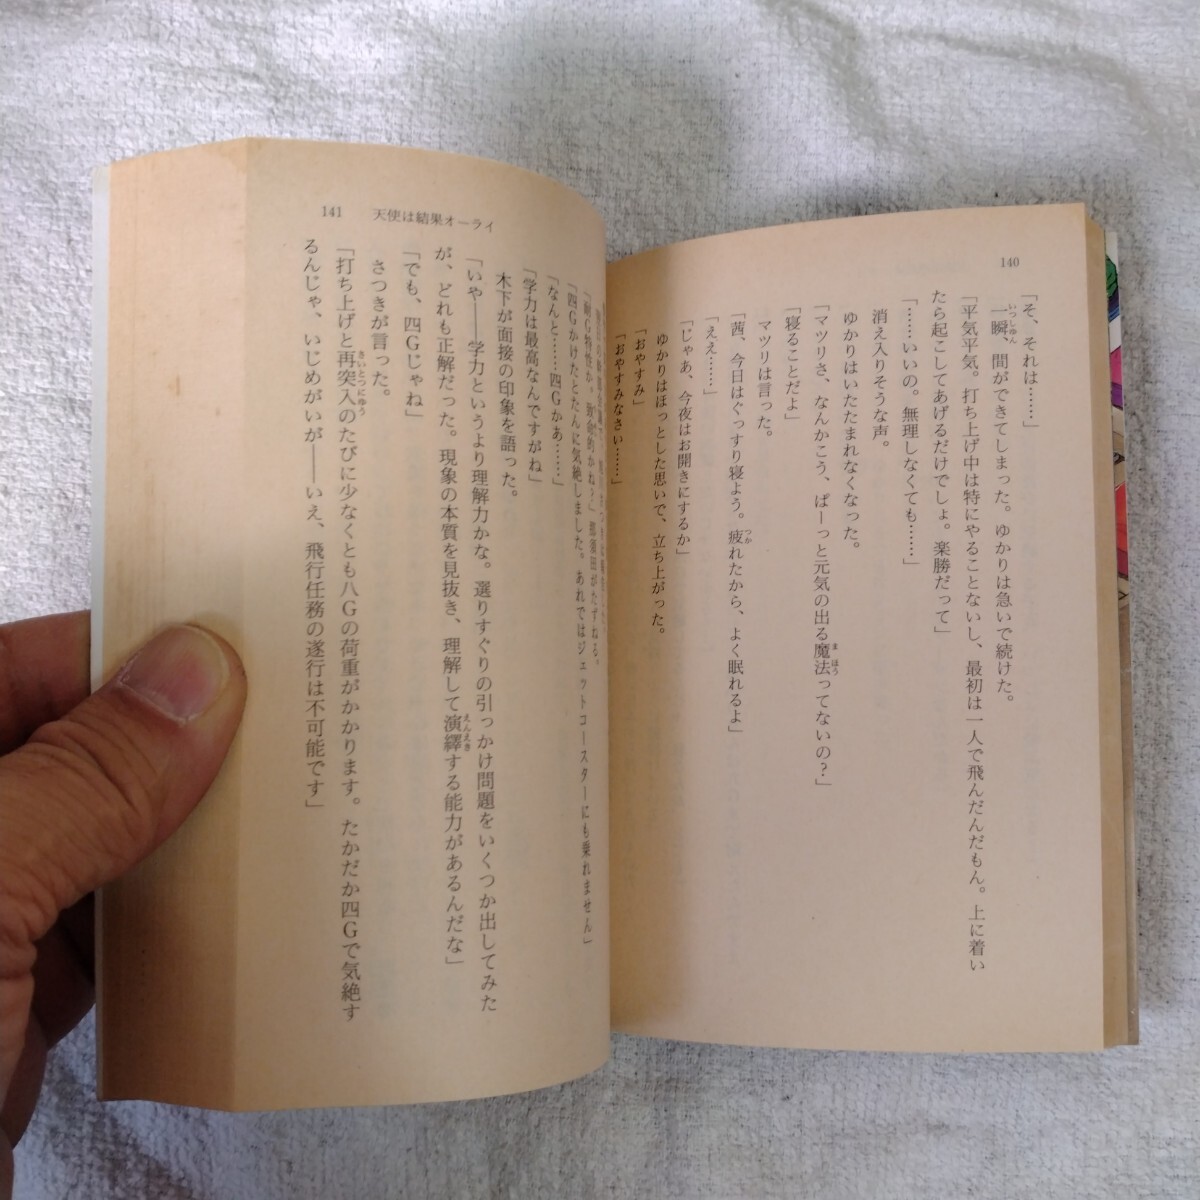 140
「そ、それは……」
一瞬、間ができてしまった。ゆかりは急いで続けた。
「平気平気。打ち上げ中は特にやることないし、最初は一人で飛んだんだもん。上に着い
たら起こしてあげるだけでしょ。楽勝だって」
「……いいの。無理しなくても……」
消え入りそうな声。
ゆかりはいたたまれなくなった。
「マツリさ、なんかこう、ぱーっと元気の出る魔法ってないの?」
「寝ることだよ」
マツリは言った。
「茜、今日はぐっすり寝よう。疲れたから、よく眠れるよ」
「ええ……」
「じゃあ、今夜はお開きにするか」
ゆかりはほっとした思いで、立ち上がった。
「おやすみ」
「おやすみなさい……」
141 天使は結果オーライ
「耐G特性か。致命的かね?」那須田がたずねる。
「四Gかけたとたんに気絶しました。あれではジェットコースターにも乗れません」
「なんと……四Gかあ……」
「学力は最高なんですがね」
木下が面接の印象を語った。
「いや――学力というより理解力かな。選りすぐりの引っかけ問題をいくつか出してみた
が、どれも正解だった。現象の本質を見抜き、理解して演繹する能力があるんだな」
「でも、四Gじゃね」
さつきが言った。
「打ち上げと再突入のたびに少なくとも八Gの荷重がかかります。たかだか四Gで気絶す
るんじゃ、いじめがいが――いえ、飛行任務の遂行は不可能です」